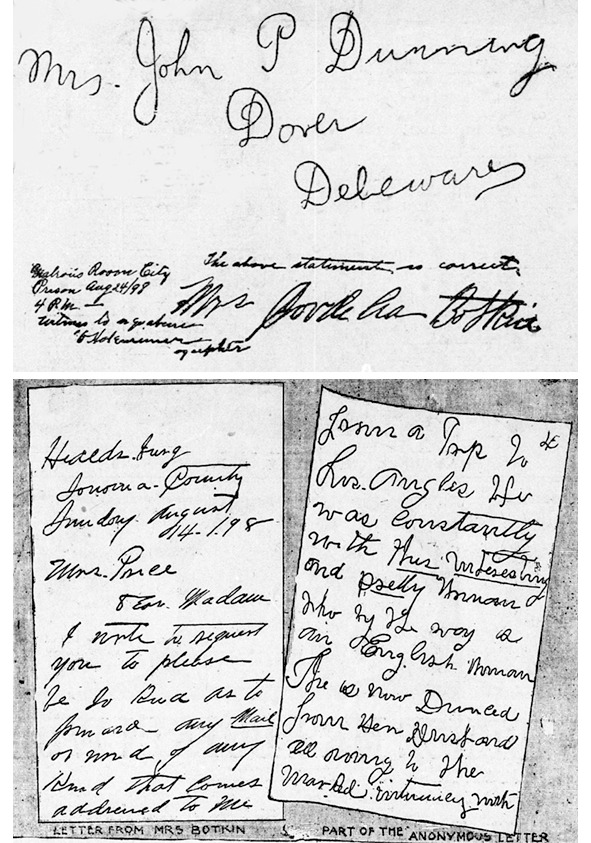 Mrs. John P Dunning
Dover
Deleware
The above statement is correct
Mrs Cordelia Botkin
Room City
Prison Aug 24/98
4 P.M.
witness to signature
Healdsburg
Sonoma. County
Sunday August
14. 1.98
Mrs. Price
Dear. Madam
I wote to request
you to please
be so kind as to
forward any Mail
or word of any
Kind that comes
addressed to Me
LETTER FROM MRS BOTKIN
from a Trip to
Los. Angles He
was Constantly
with this interesting
and pretty Woman
who by the way is
an English Woman
She is now Divorced
from Her Husband
all owing to the
marked intimacy with
PART OF THE ANONYMOUS LETTER